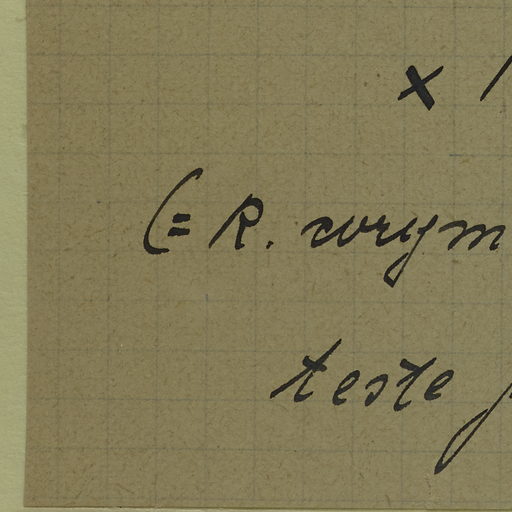 ×
(= R. corym
teste